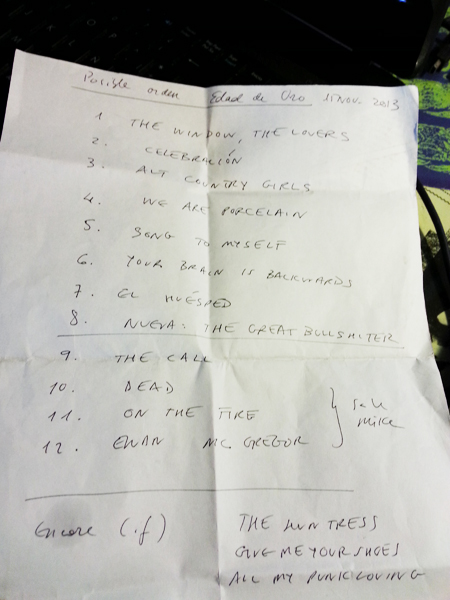 Posible orden Edad de Oro 15 Nov. 2013
1 THE WINDOW, THE LOVERS
2. CELEBRACIÓN
3. ALT COUNTRY GIRLS
4. WE ARE PORCELAIN
5. SONG TO MYSELF
6. YOUR BRAIN IS BACKWARDS
7. EL HUÉSPED
8. NUEVA: THE GREAT BULLSHITER
9. THE CALL
10. DEAD
11. ON THE FIRE
12. EWAN MC. GREGOR
mike
Encore (if)
THE HUNTRESS
GIVE ME YOUR SHOES
ALL MY PUNK LOVING